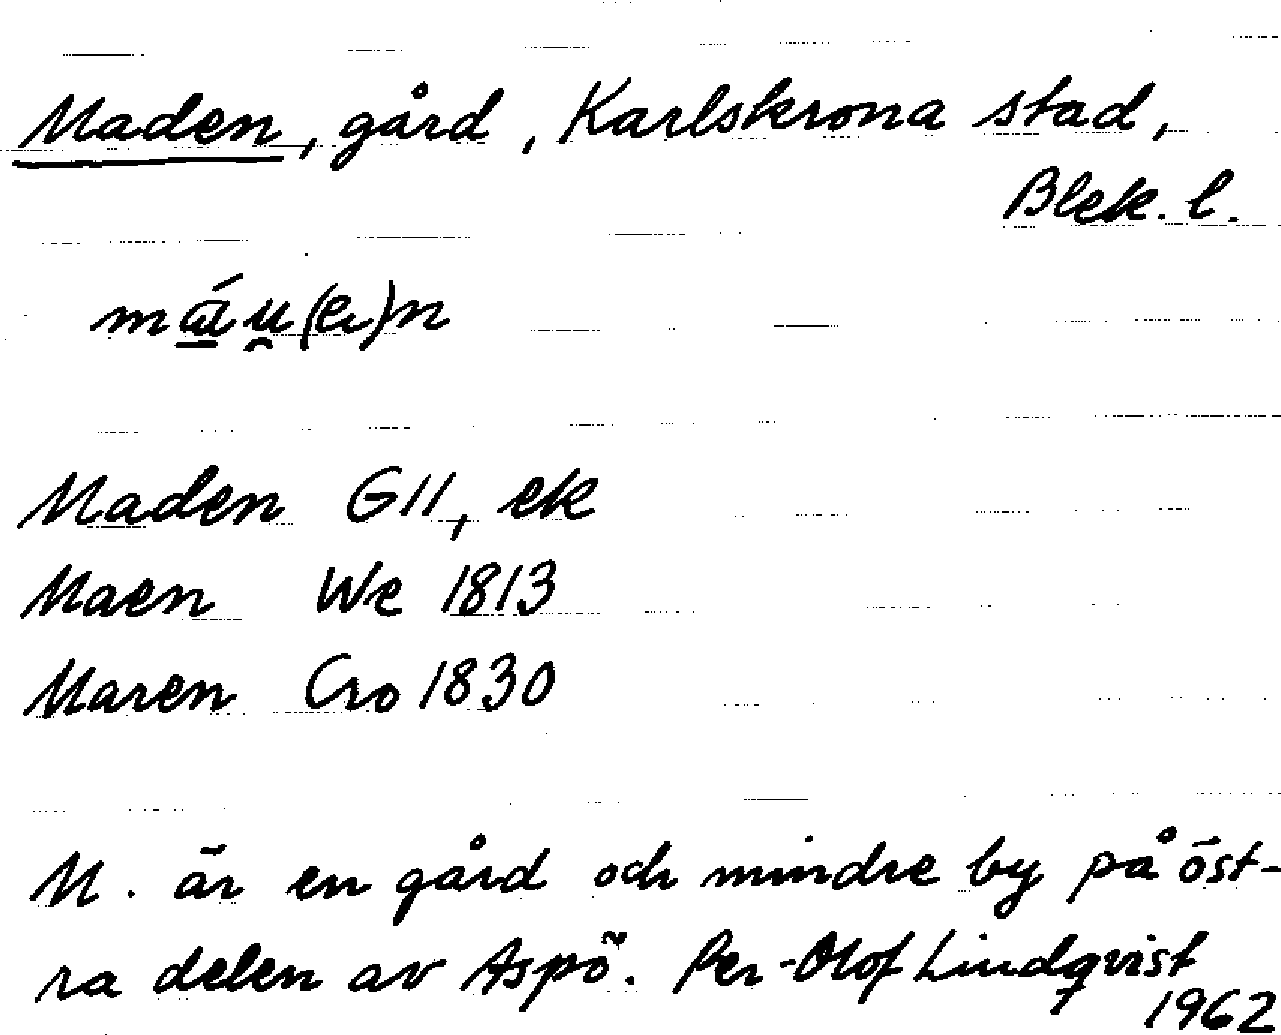 Maden, gård, Karlskrona stad,
Blek. l.
má̱u̯(e)n
Maden GII, ek
Maen We 1813
Maren Cro 1830
M. är en gård och mindre by på öst-
ra delen av Aspö. Per-Olof Lindqvist
1962